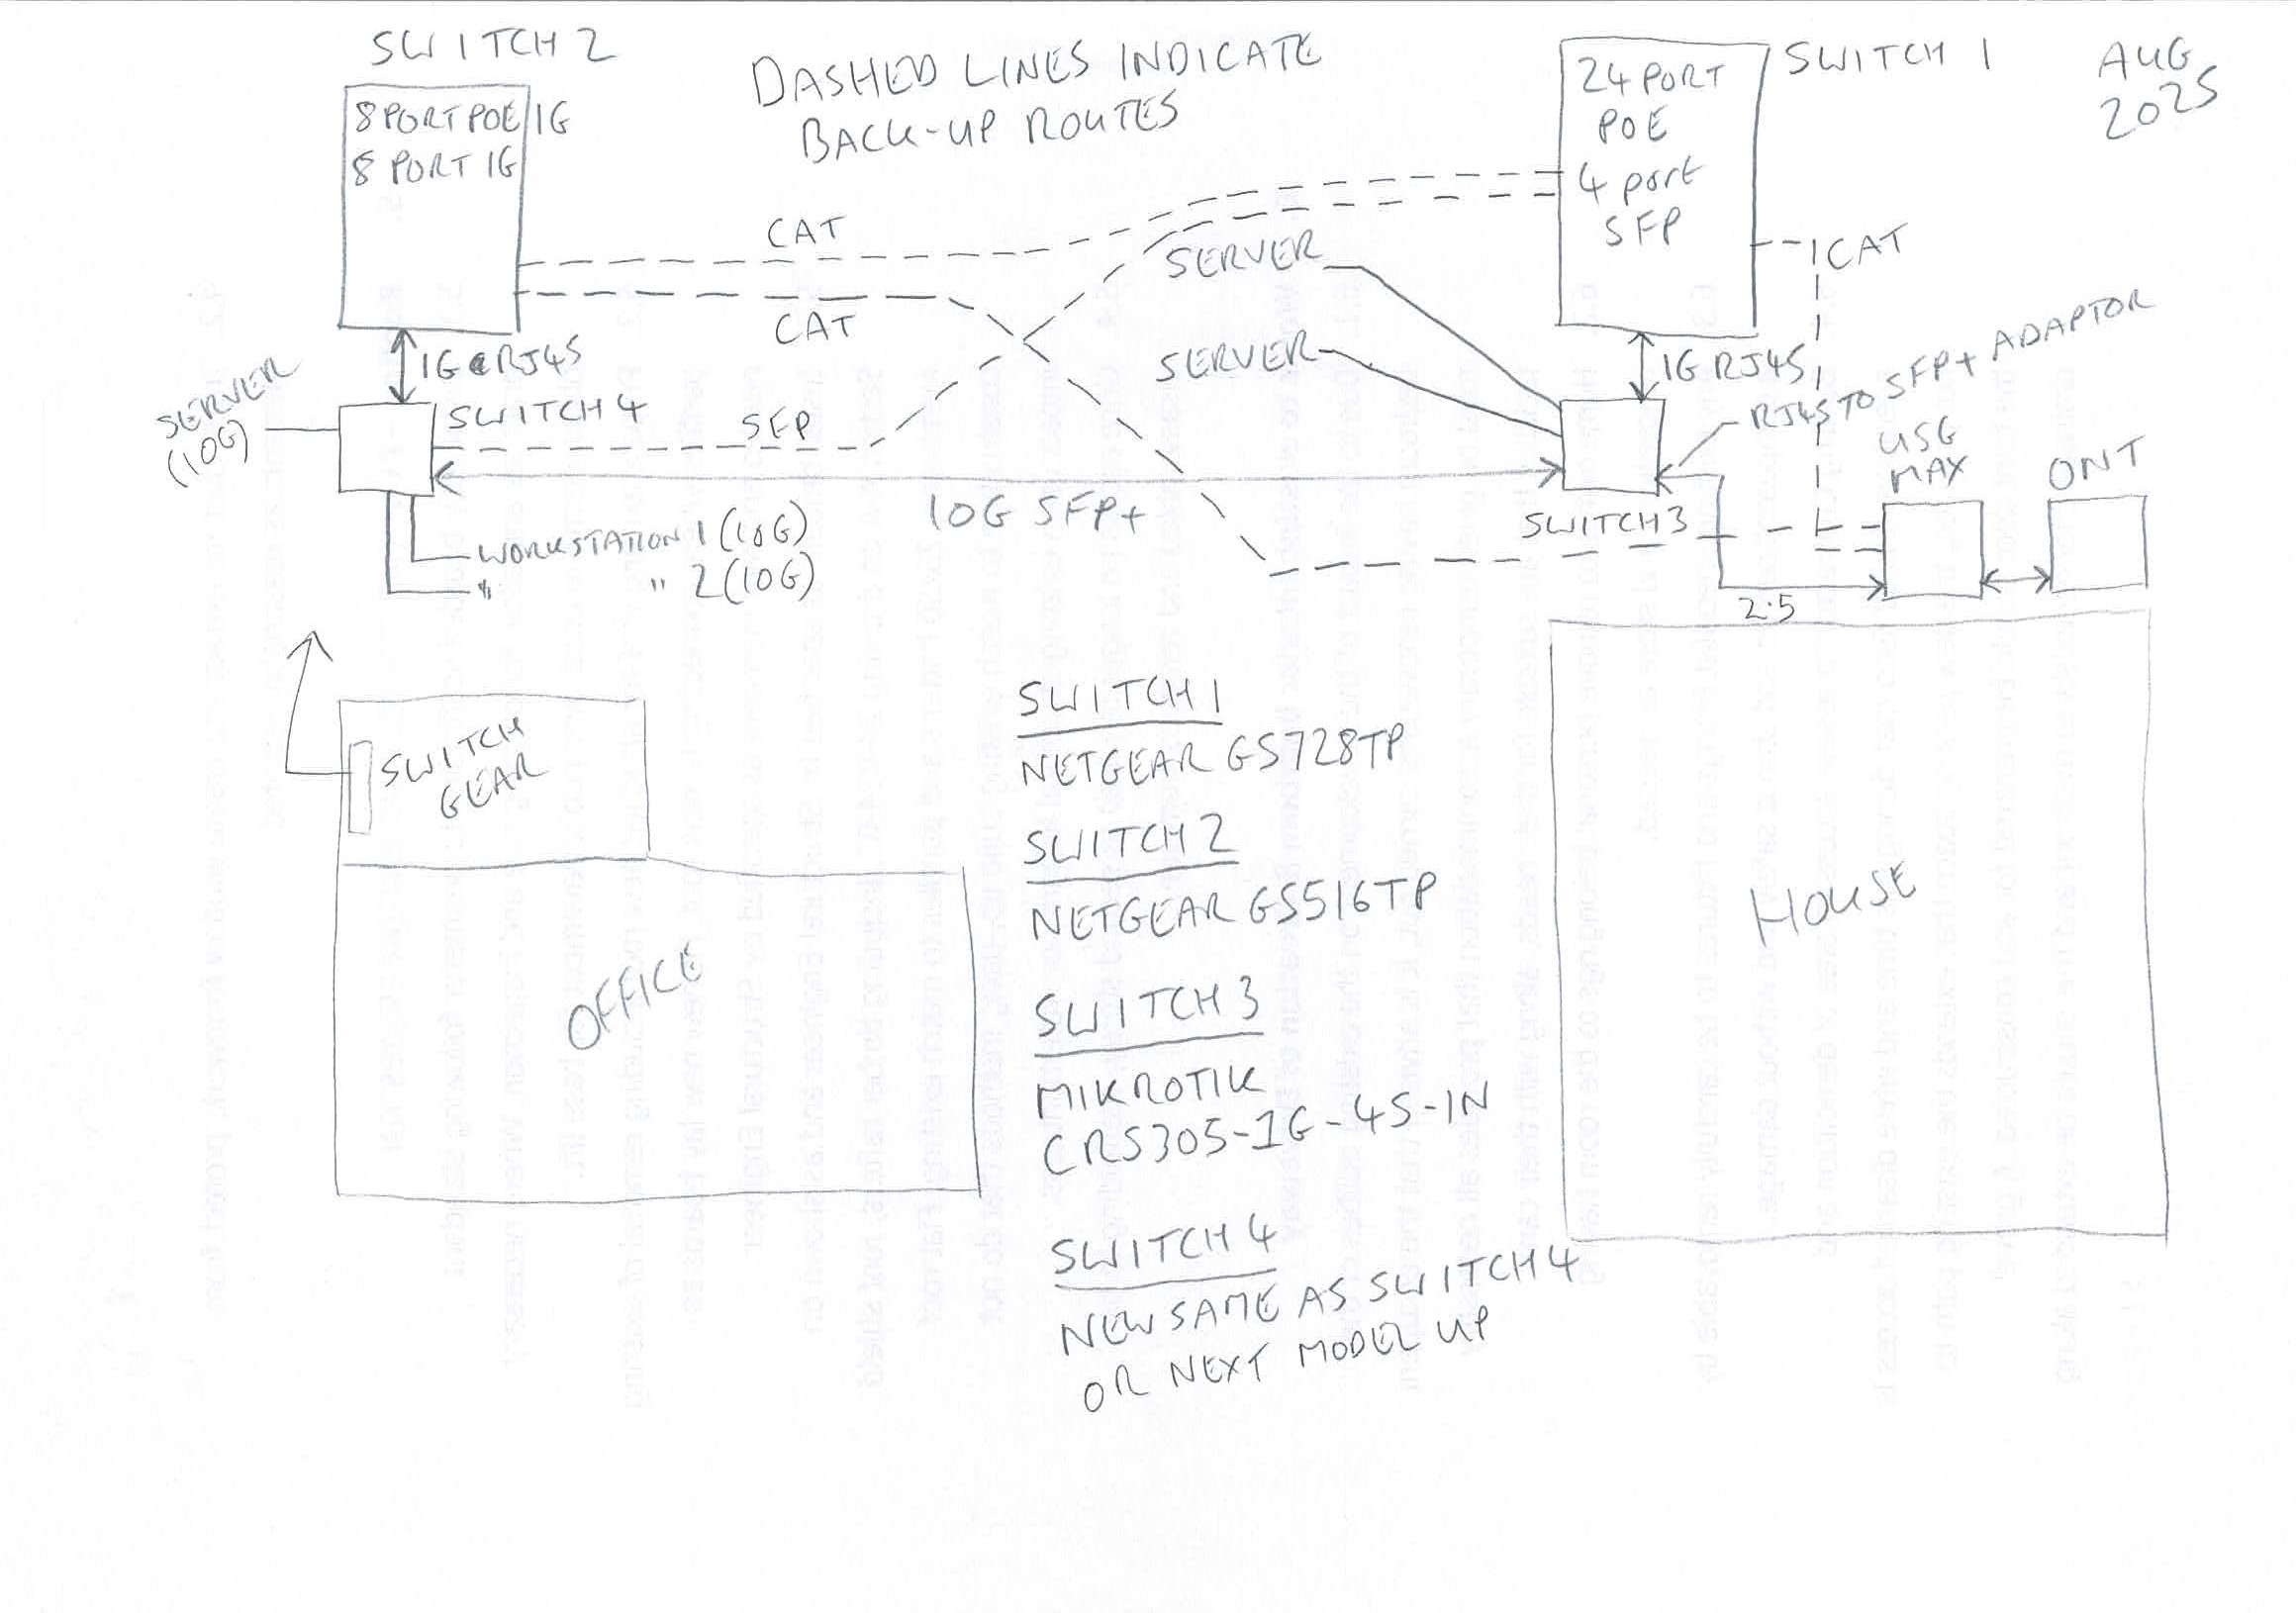 SWITCH 2
DASHED LINES INDICATE
BACK-UP ROUTES
SWITCH 1
AUG
2025
8 PORT POE 1G
8 PORT 1G
24 PORT
POE
4 port
SFP
CAT
CAT
SERVER
SERVER
CAT
1G RJ45
1G RJ45
RJ45 TO SFP+ ADAPTOR
SERVER
(10G)
SWITCH 4
SFP
10G SFP+
SWITCH 3
USG
MAX
ONT
WORKSTATION 1 (10G)
" " 2 (10G)
2.5
SWITCH
GEAR
OFFICE
SWITCH 1
NETGEAR GS728TP
SWITCH 2
NETGEAR GS516TP
SWITCH 3
MIKROTIK
CRS305-1G-4S-IN
SWITCH 4
NEW SAME AS SWITCH 4
OR NEXT MODEL UP
HOUSE